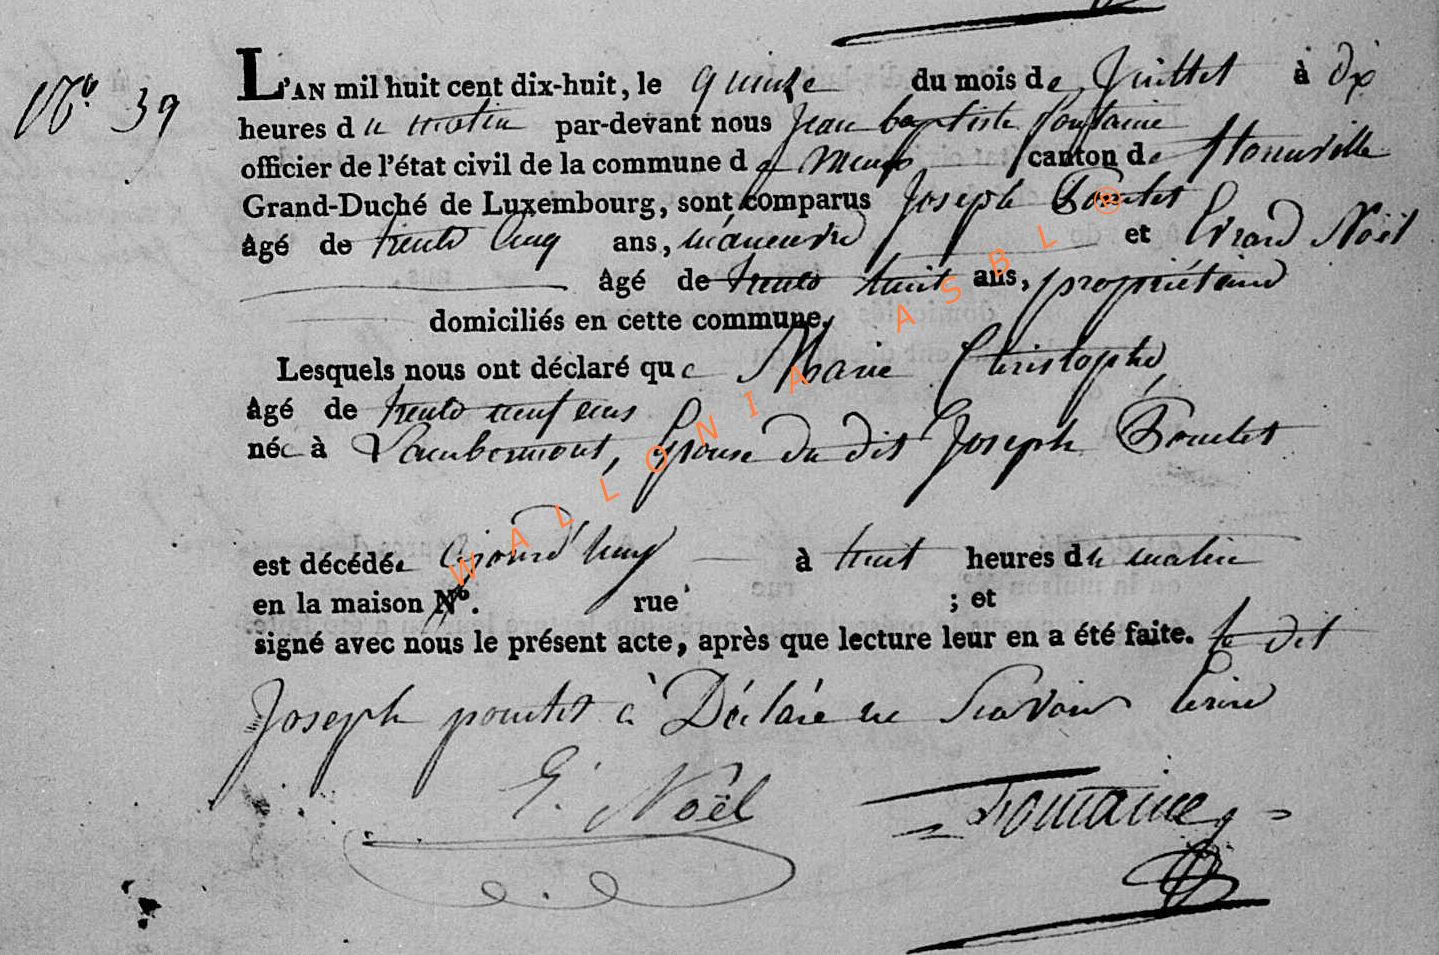 N° 39
L'AN mil huit cent dix-huit, le quinze du mois de Juillet à dix
heures du matin par-devant nous Jean baptiste fontaine
officier de l'état civil de la commune de canton de
Grand-Duché de Luxembourg, sont comparus Joseph Pontet
âgé de trente Cinq ans, manœuvre et Erard Noël
âgé de trente huit ans, propriétaire
domiciliés en cette commune.
Lesquels nous ont déclaré que Marie Christophe
âgé de trente neuf ans
née à Vauxbermont, Epouse du dit Joseph Pontet
est décédée à huit heures du matin
en la maison N°. rue ; et
signé avec nous le présent acte, après que lecture leur en a été faite. le dit
Joseph pontet à Déclaré ne Scavoir Ecrire
E. Noël
Fontaine
WALLONIA ASBL ®